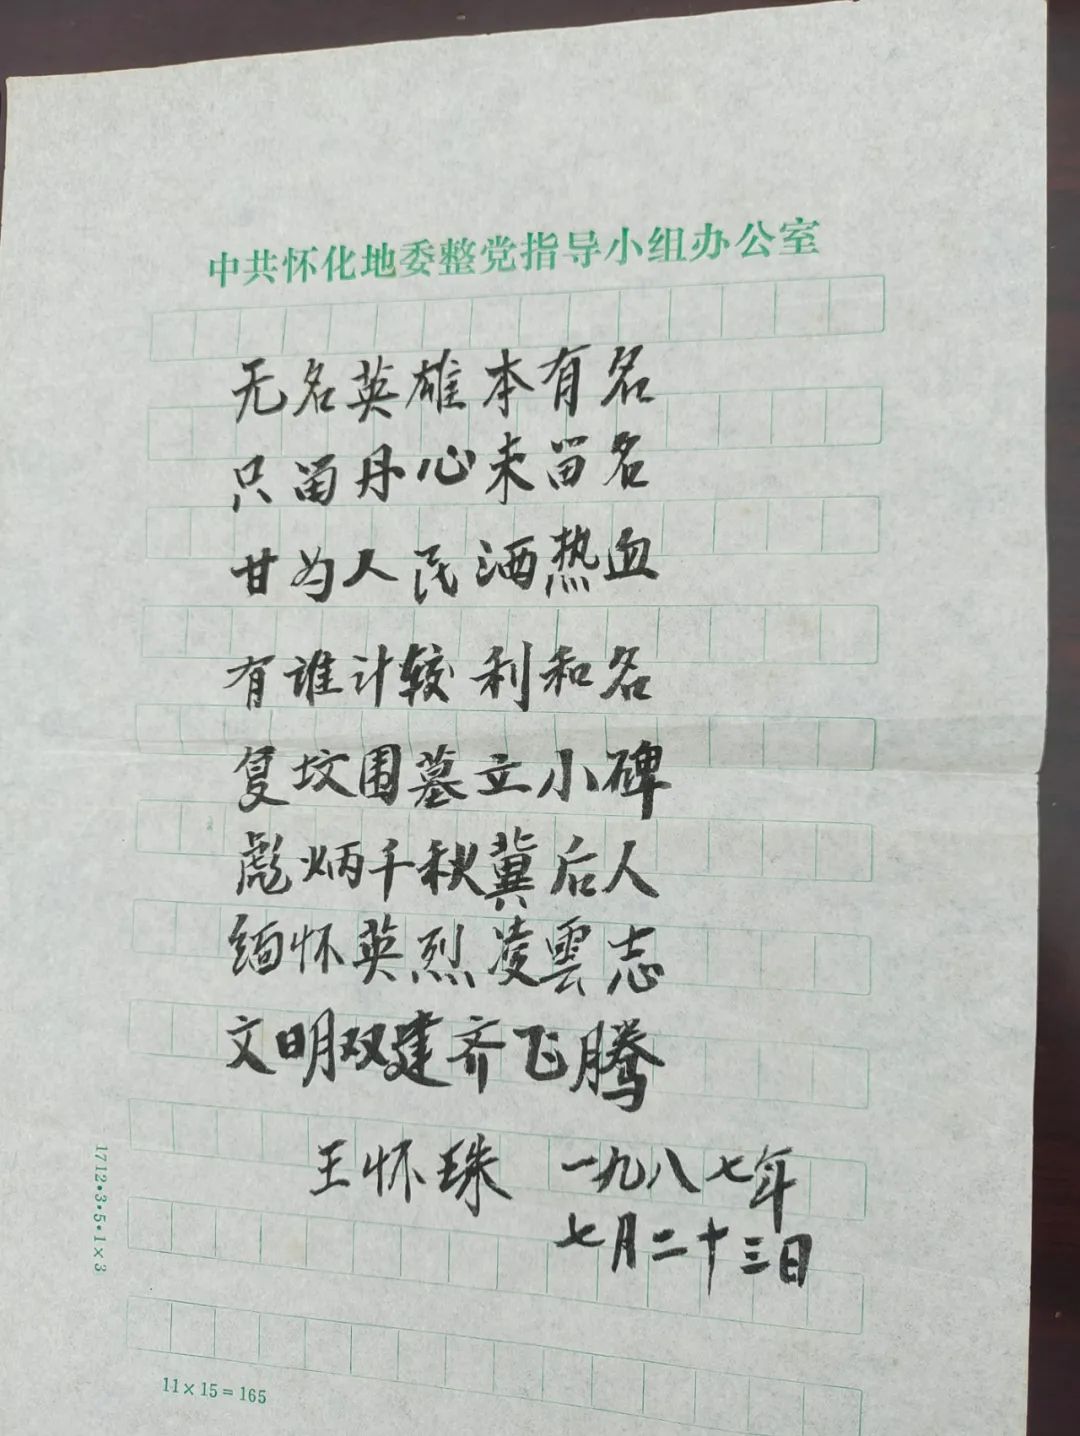 中共怀化地委整党指导小组办公室
无名英雄本有名
只留丹心未留名
甘为人民洒热血
有谁计较利和名
复坟围墓立小碑
彪炳千秋冀后人
缅怀英烈凌雲志
文明双建齐飞腾
王怀珠 一九八七年
七月二十三日
1712•3•5•1×3
11×15=165